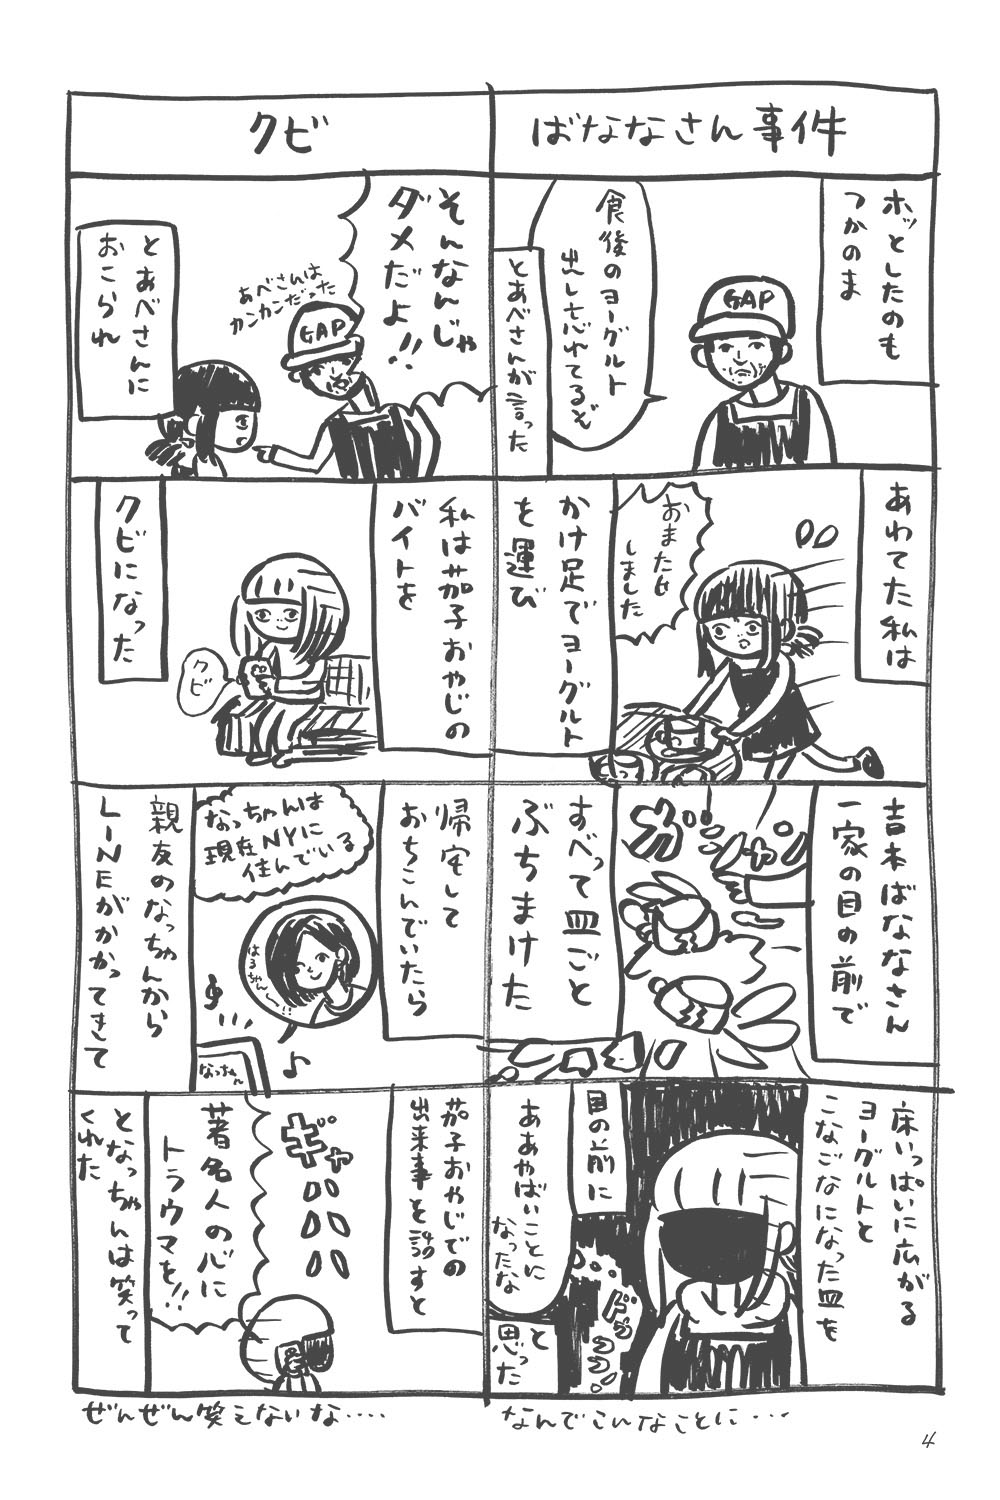 ばななさん事件
ホッとしたのも
つかのま
GAP
食後のヨーグルト
出し忘れてるぞ
とあべさんが言った
あわてた私は
おまたせ
しました
かけ足でヨーグルト
を運び
吉本ばななさん
一家の目の前で
ガシャン
すべって皿ごと
ぶちまけた
床いっぱいに広がる
ヨーグルトと
こなごなになった皿を
目の前に
ああやばいことに
なったな
と
思った
なんでこんなことに・・・
クビ
そんなんじゃ
ダメだよ!!
あべさんは
カンカンだった
GAP
とあべさんに
おこられ
私は茄子おやじの
バイトを
クビ
クビになった
帰宅して
おちこんでいたら
なっちゃんは
現在NYに
住んでいる
はるちゃんー!!
なっちゃん
親友のなっちゃんから
LINEがかかってきて
茄子おやじでの
出来事を話すと
ギャハハハハ
著名人の心に
トラウマを!!
となっちゃんは笑って
くれた
ぜんぜん笑えないな・・・・
4